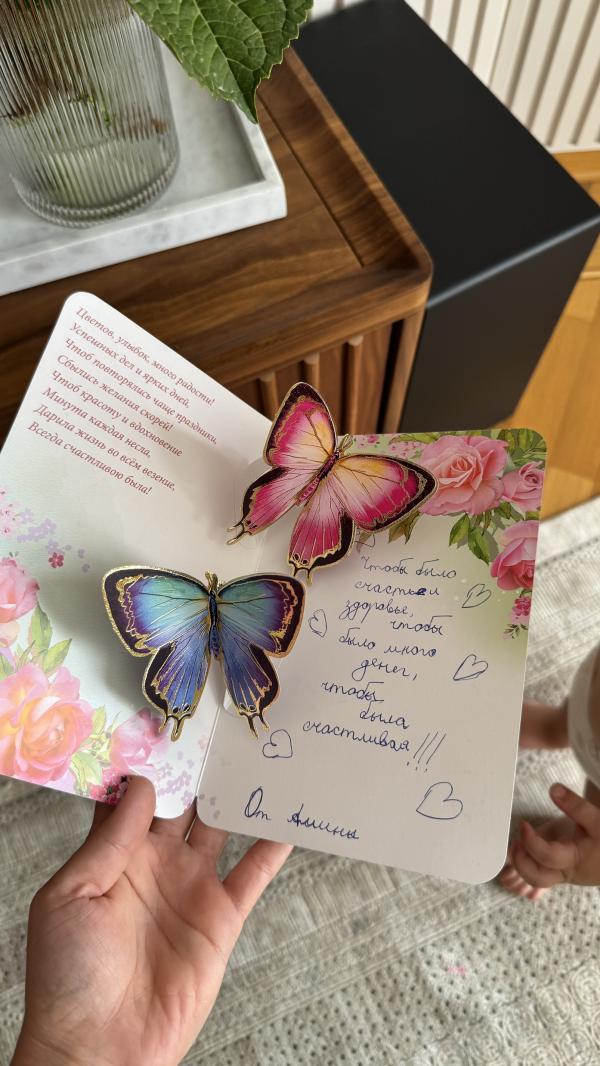 Цветов, улыбок, много радости!
Успешных дел и ярких дней,
Чтоб повторялись чаще праздники,
Сбылись желания скорей!
Чтоб красоту и вдохновение
Минута каждая несла,
Дарила жизнь во всём везение,
Всегда счастливою была!
Чтобы было
счастье и
здоровье,
чтобы
было много
денег,
чтобы
была
счастливая!!!
От Амины